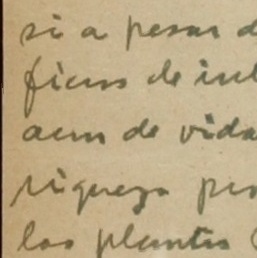 si a pesar d
ficus de in
aun de vida
riqueza pe
las plantas